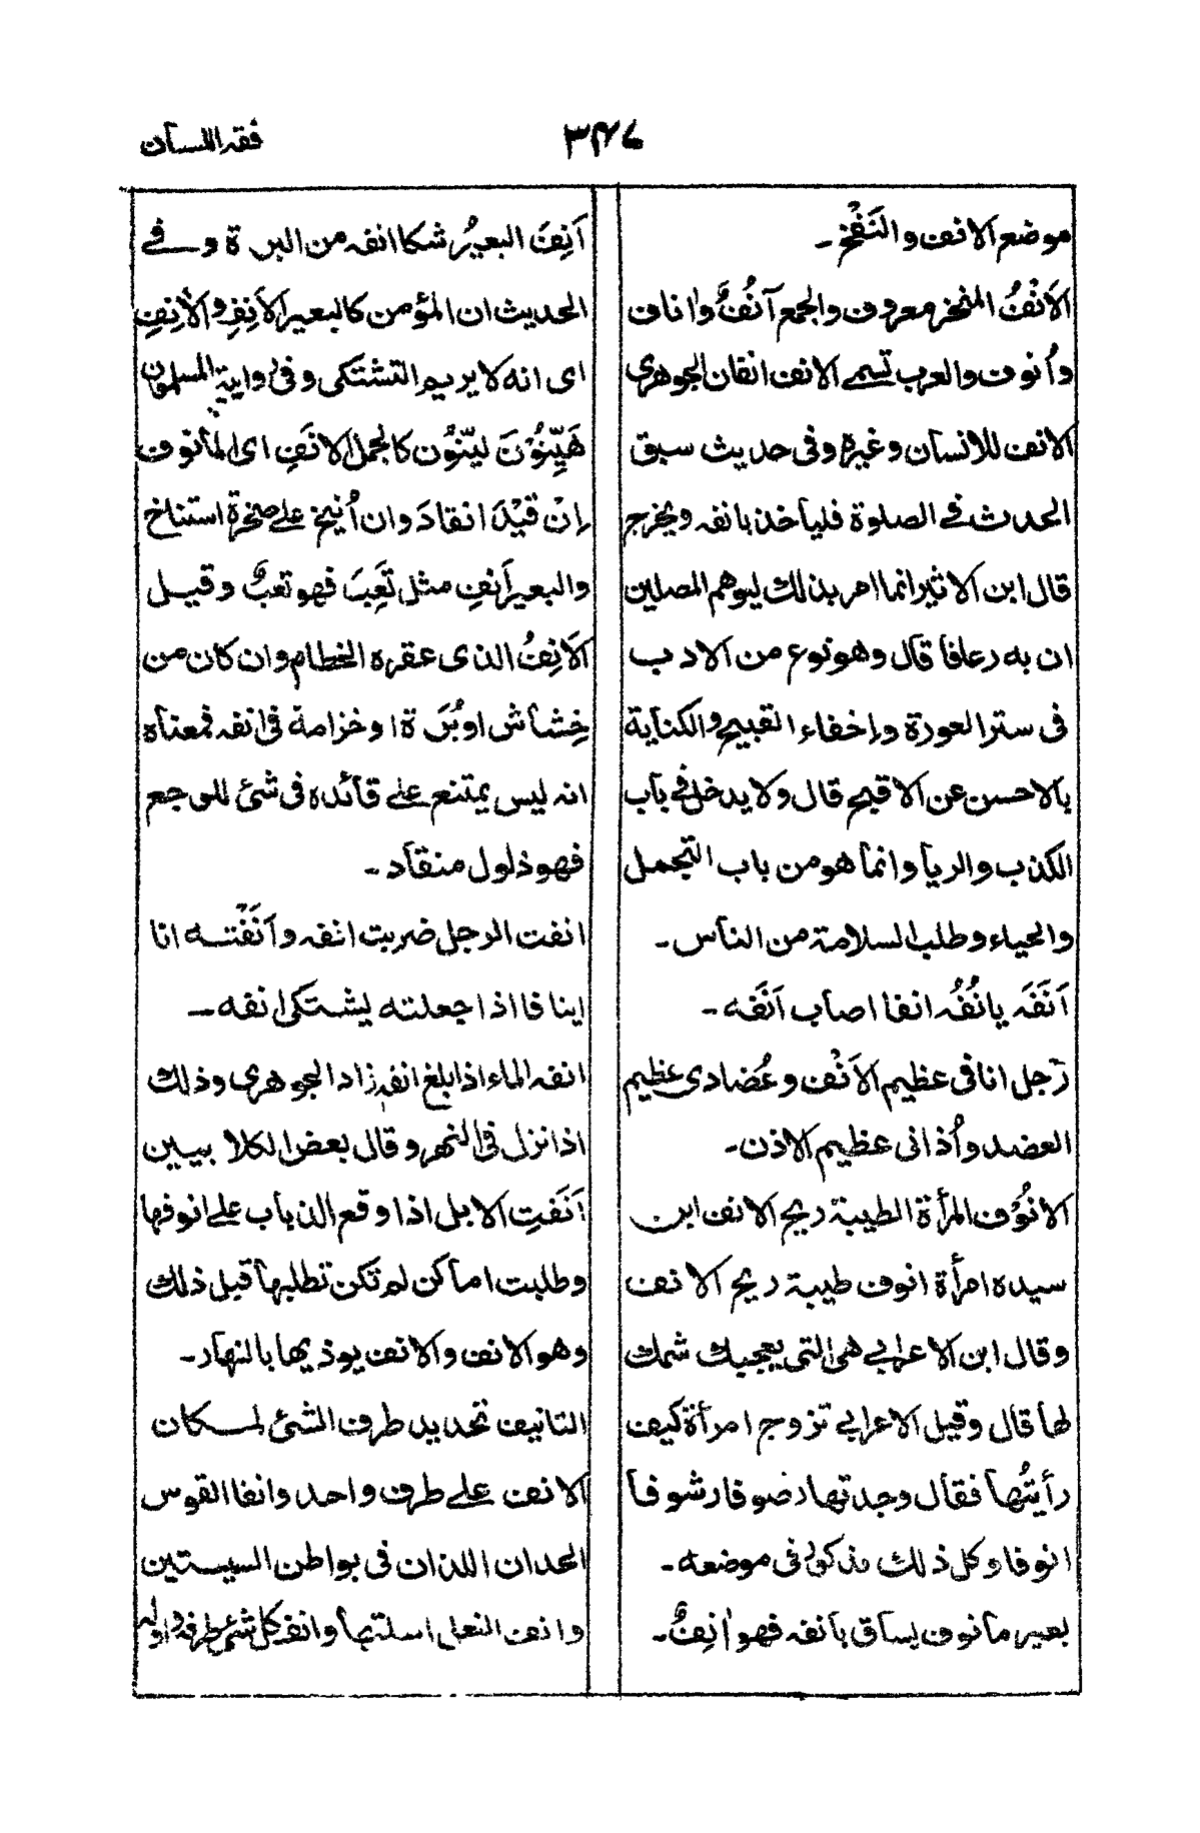 فقه اللسان
٣٤٧
موضع الانف والنَفْخ۔
الاَنْفُ المنخر معروف والجمع آنُفٌ واناف
واُنوف والعرب تسمے الانف انفان الجوهری
الانف للانسان وغیرہ وفی حدیث سبق
الحدث فے الصلوة فلیأخذ بانفه ویخرج
قال ابن الاثیر انما امر بذلك لیوهم المصلین
ان به رعافا قال وهو نوع من الادب
فی ستر العورة واخفاء القبیح والکنایة
بالاحسن عن الاقبح قال ولا یدخل فے باب
الکذب والریا وانما هو من باب التجمل
والحیاء وطلب السلامة من الناس۔
اَنَفَه یانُفُه انفا اصاب اَنَفَه۔
رَجل انافی عظیم الاَنْف وعُضادی عظیم
العضد واُذانی عظیم الاذن۔
الانُوف المرأة الطیبة ریح الانف ابن
سیدہ امرأة انوف طیبة ریح الانف
وقال ابن الاعرابے هی التی یعجبك شمك
لها قال وقیل لاعرابے تزوج امرأة کیف
رأیتُها فقال وجدتها رضوفا رشوفا
انوفا وکل ذلك مذکور فی موضعه۔
بعیر مانوف یساق بانفه فهو اَنِفٌ۔
اَنِفَ البعیرُ شکا انفه من البرة وفے
الحدیث ان المؤمن کالبعیر الاَنِفِ والآنِفِ
ای انه لا یریم التشتکی وفی روایة المسلمون
هَیِّنُوْنَ لیّنُون کالجمل الانَفِ ای المأنوف
اِنْ قیْدَ انقادَ وان اُنِیْخ علے صخرة استناخ
والبعیر اَنِفِ مثل تَعِبَ فهو تعِبٌ وقیل
الاَنِفُ الذی عقرہ الخطام وان کان من
خِشاش او بُرَة او خزامة فی انفه فمعناہ
انه لیس یمتنع علے قائدہ فی شئ للوجع
فهو ذلول منقاد۔
انفت الرجل ضربت انفه وآنَفْته انا
اینافا اذا جعلته یشتکی انفه۔
انفه الماء اذا بلغ انفه زاد الجوهری وذلك
اذا نزل فی النهر وقال بعض الکلابیین
اَنَفَتِ الابل اذا وقع الذباب علے انوفها
وطلبت اماکن لم تکن تطلبها قبل ذلك
وهو الانف والانف یوذیها بالنهار۔
التانیف تحدید طرف الشئ لمکان
الانف علے طرف واحد وانفا القوس
الحدان اللذان فی بواطن السیتین
وانف النعل اسلتها وانف کل شئ طرفه واوله